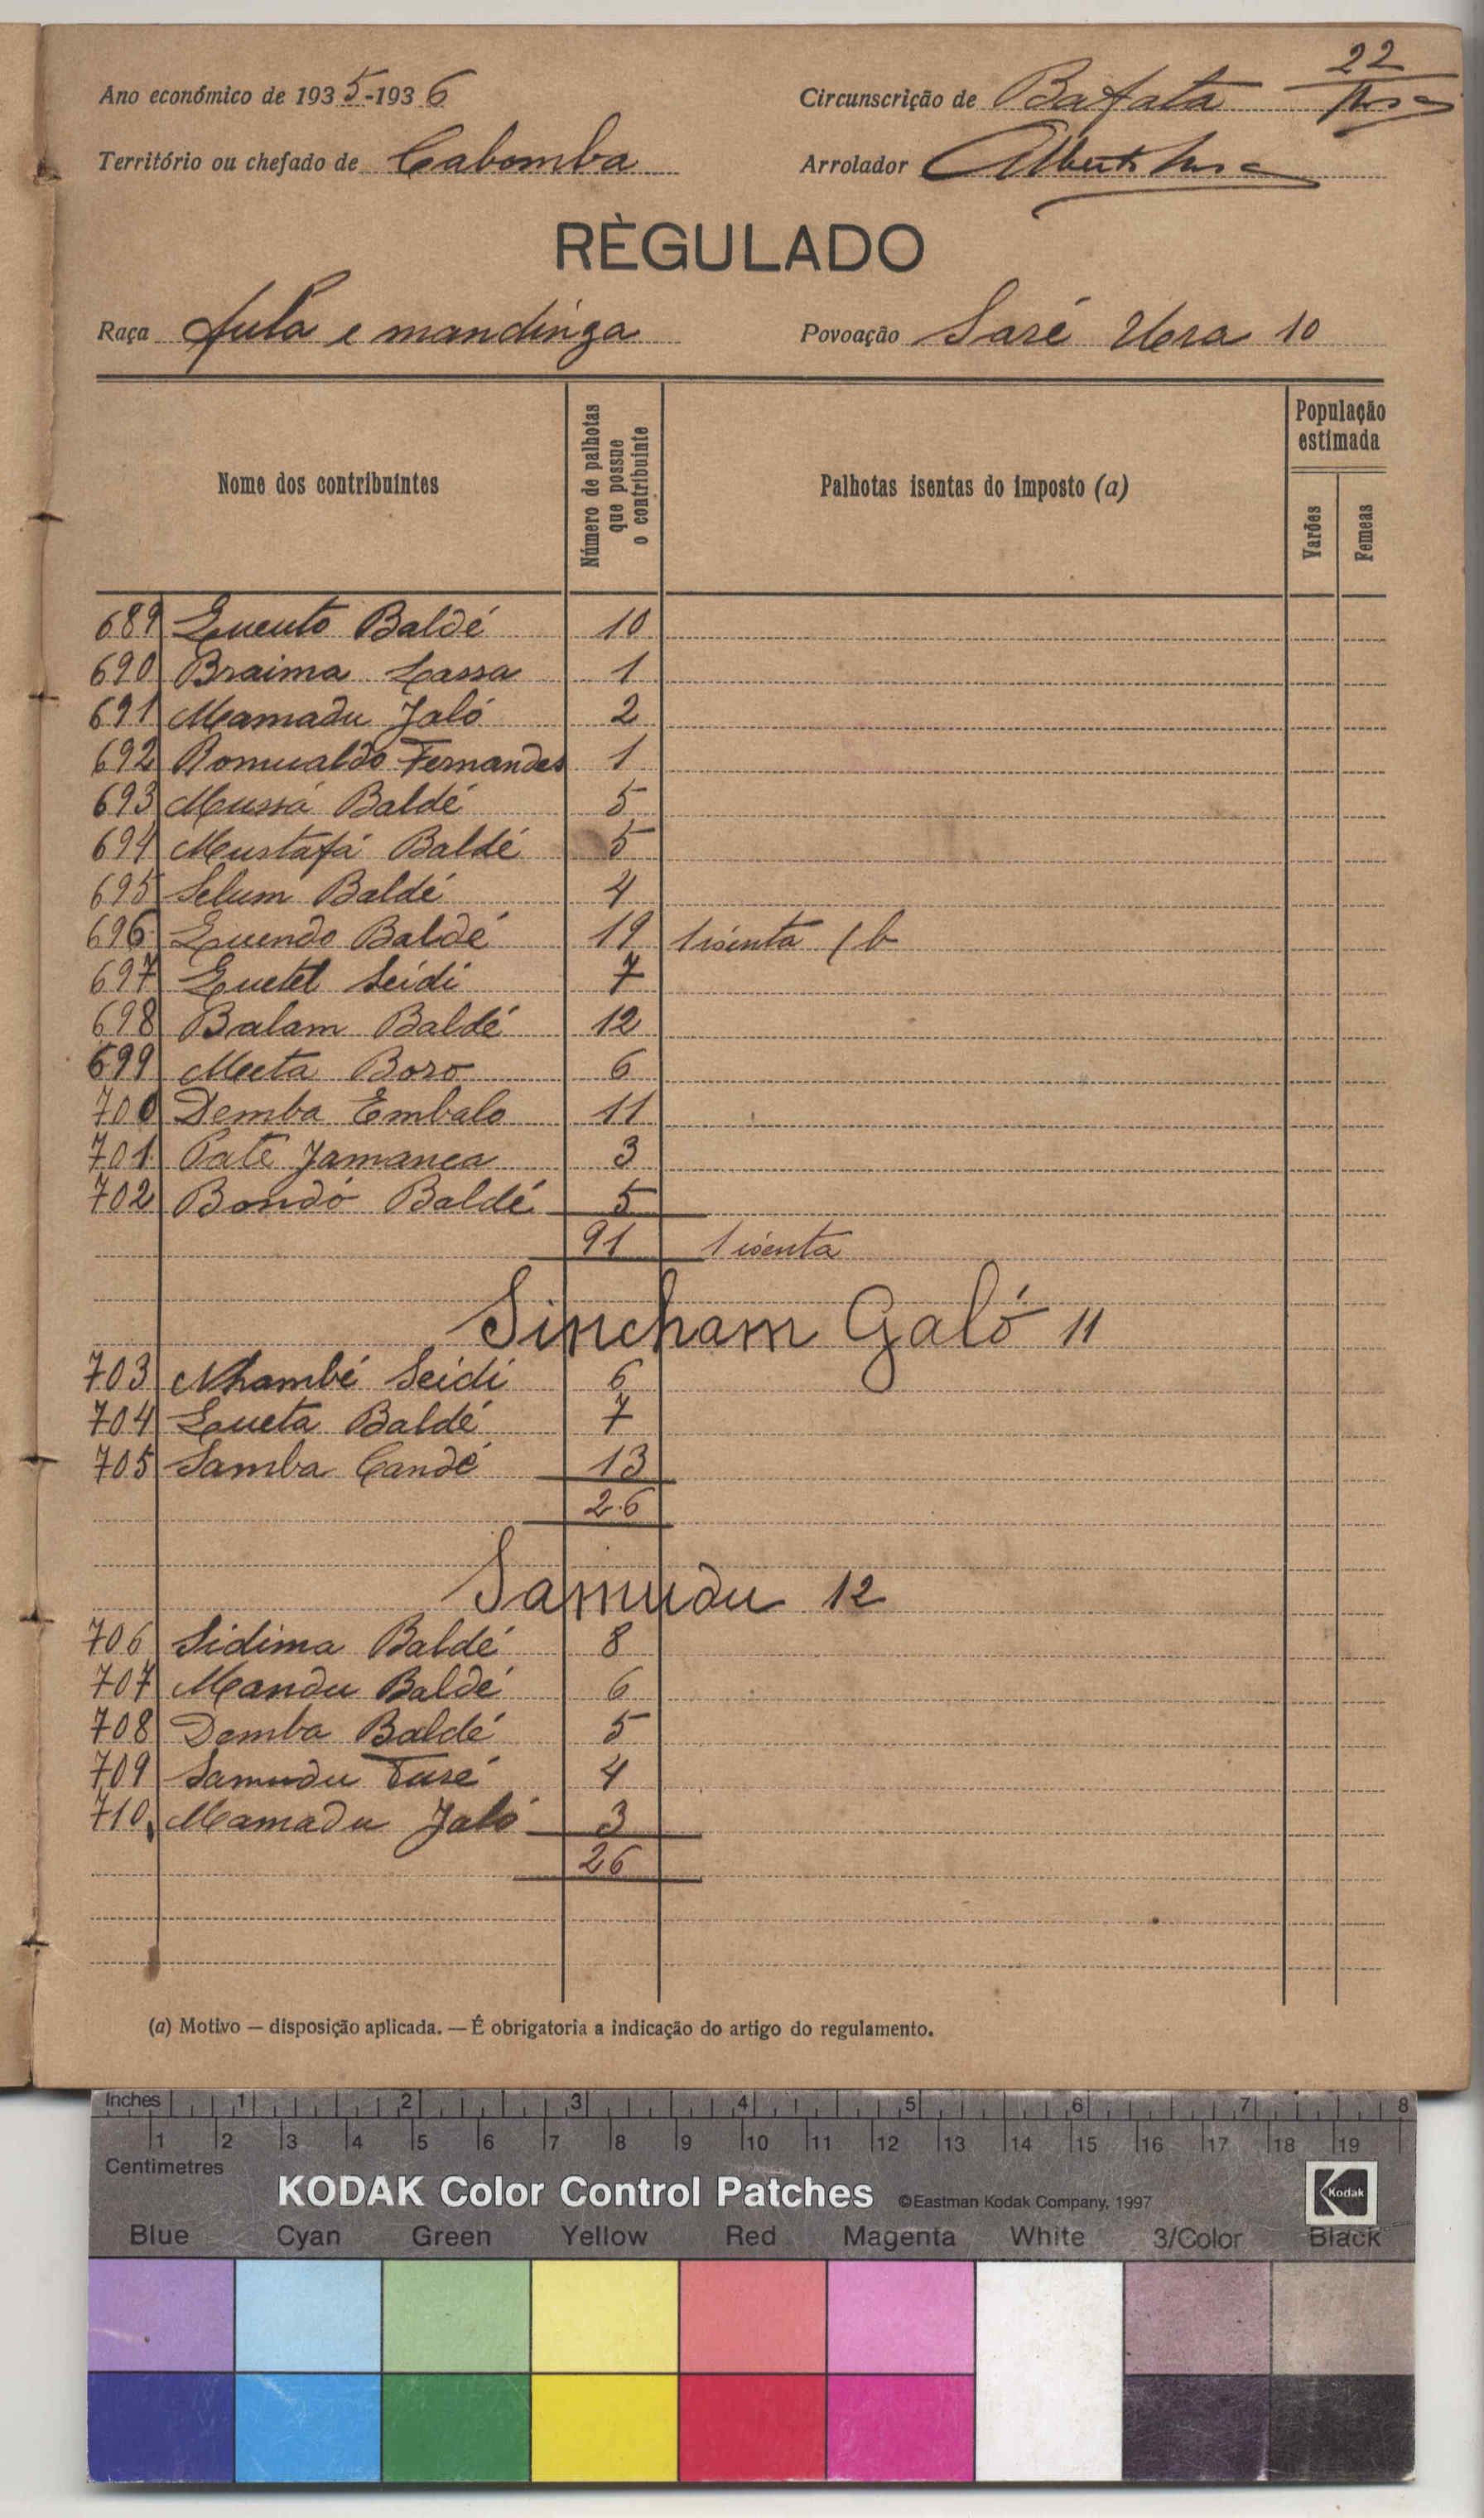 22
Ano económico de 1935-1936
Circunscrição de Bafata
Território ou chefado de Cabomba
Arrolador Alberto
RÈGULADO
Raça fula e mandinga
Povoação Saré Uera 10
Nome dos contribuintes
Número de palhotas que possue o contribuinte
Palhotas isentas do imposto (a)
População estimada
Varões
Femeas
689 Quecuto Baldé 10
690 Braima Cassa 1
691 Mamadu Jaló 2
692 Romualdo Fernandes 1
693 Mussá Baldé 5
694 Mustafá Baldé 5
695 Selum Baldé 4
696 Quendo Baldé 19 1 isenta 1 b
697 Quetel Seidi 7
698 Balam Baldé 12
699 Meeta Boro 6
700 Demba Embalo 11
701 Pate Jamanca 3
702 Bondó Baldé 5
91 1 isenta
Sincham Galó 11
703 Nhambé Seidi 6
704 Queta Baldé 7
705 Samba Candé 13
26
Samudu 12
706 Sidima Baldé 8
707 Mandu Baldé 6
708 Demba Baldé 5
709 Samudu Turé 4
710 Mamadu Jaló 3
26
(a) Motivo — disposição aplicada. — É obrigatoria a indicação do artigo do regulamento.
Inches 1 2 3 4 5 6 7 8
1 2 3 4 5 6 7 8 9 10 11 12 13 14 15 16 17 18 19
Centimetres
KODAK Color Control Patches ©Eastman Kodak Company, 1997 Kodak
Blue Cyan Green Yellow Red Magenta White 3/Color Black